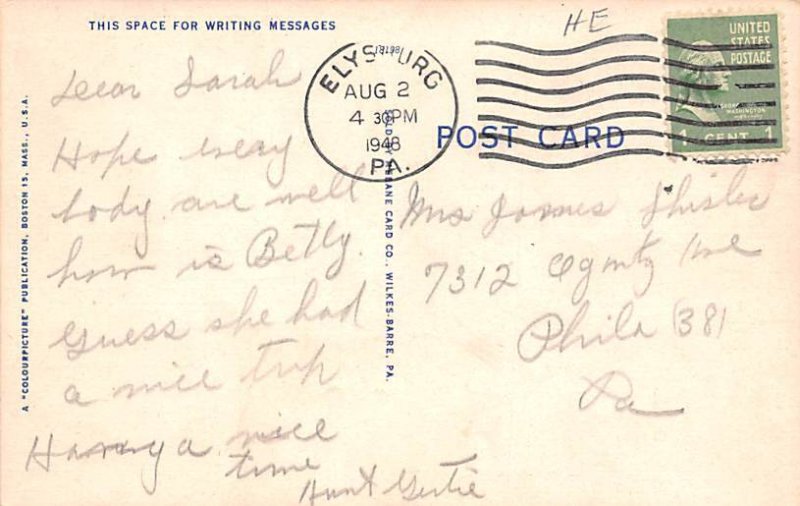 THIS SPACE FOR WRITING MESSAGES
HE
Dear Sarah
Hope every
body are well
how is Betty.
Guess she had
a nice trip
Having a nice
time
Aunt Gertie
18198
ELYSBURG
AUG 2
4 30 PM
1948
PA.
UNITED
STATES
POSTAGE
WASHINGTON
1 CENT 1
POST CARD
Mrs James Shisler
7312 Ogontz Ave
Phila (38)
Pa
A "COLOURPICTURE" PUBLICATION, BOSTON 15, MASS., U.S.A.
CARD CO., WILKES-BARRE, PA.